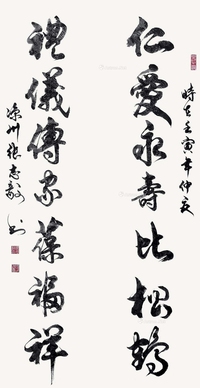 仁爱永壽比松鹤
禮儀傅家葆福祥
時在壬寅年仲夏
滦州張志毅書